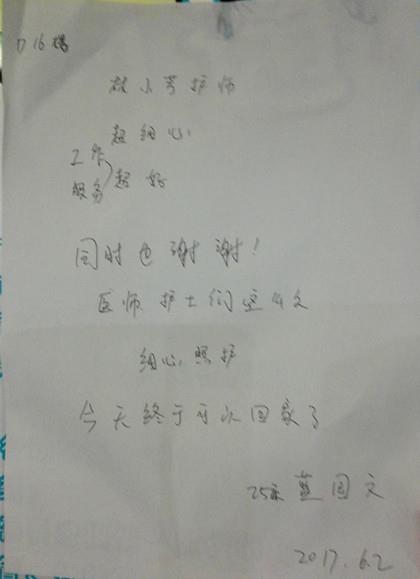 D16楼
林小芳护师
超细心
工作
服务 超好
同时也谢谢!
医师护士们这4天
细心照护
今天终于可以回家了
25床 蓝国文
2017.6.2